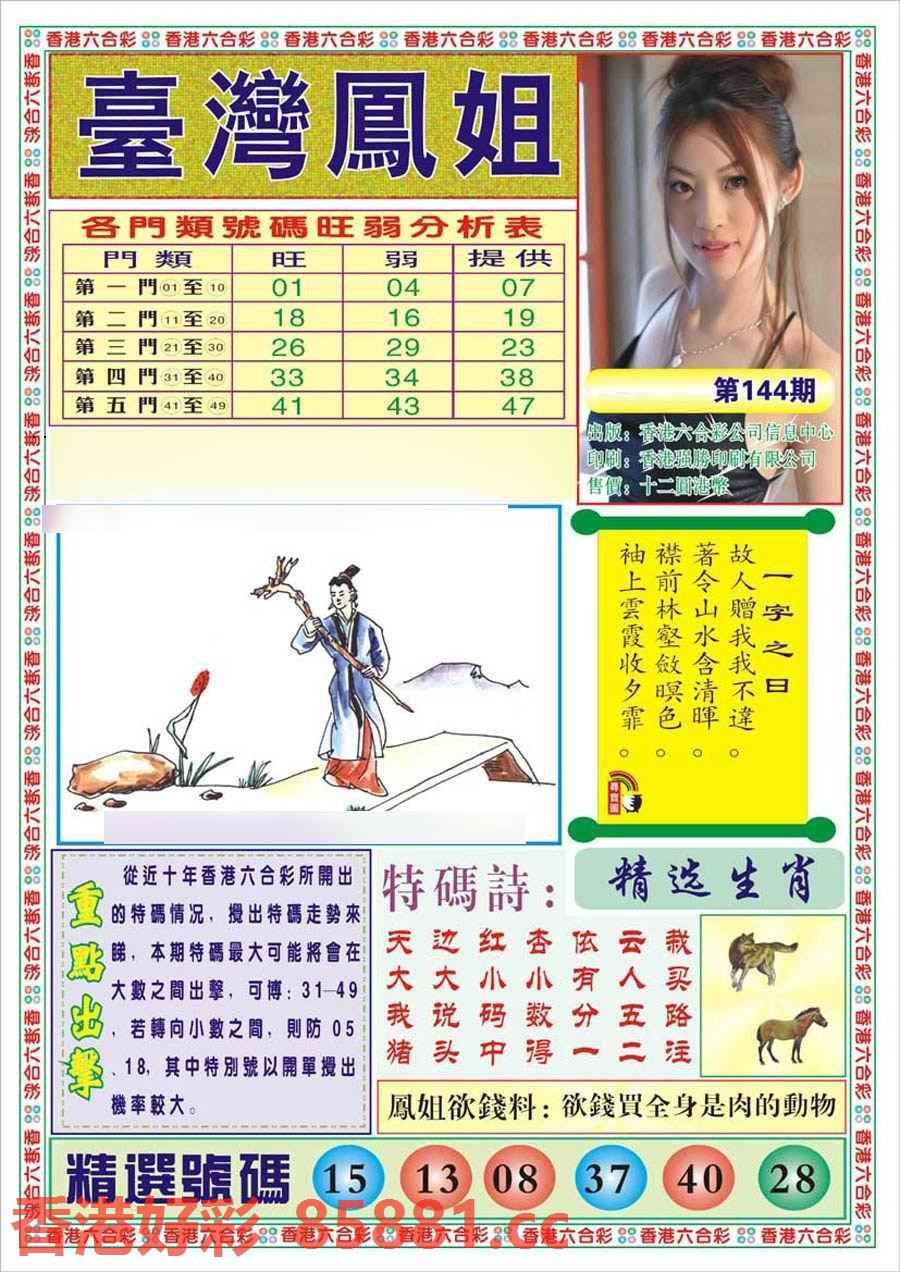 香港六合彩 香港六合彩 香港六合彩 香港六合彩 香港六合彩 香港六合彩 香港六合彩
臺灣鳳姐
各門類號碼旺弱分析表
門類 旺 弱 提供
第一門01至10 01 04 07
第二門11至20 18 16 19
第三門21至30 26 29 23
第四門31至40 33 34 38
第五門41至49 41 43 47
第144期
出版：香港六合彩公司信息中心
印刷：香港强勝印刷有限公司
售價：十二圓港幣
一字之曰
故人贈我我不違。
著令山水含清暉。
襟前林壑斂暝色。
袖上雲霞收夕霏。
尋寶圖
重點出擊
從近十年香港六合彩所開出
的特碼情况，攪出特碼走勢來
睇，本期特碼最大可能將會在
大數之間出擊，可博：31—49
，若轉向小數之間，則防 05
、18，其中特別號以開單攪出
機率較大。
特碼詩：
天边红杏依云栽
大大小小有人买
我说码数分五路
猪头中得一二注
精选生肖
鳳姐欲錢料：欲錢買全身是肉的動物
精選號碼 15 13 08 37 40 28
香港好彩 85881.cc
香港六合彩 香港六合彩 香港六合彩 香港六合彩 香港六合彩 香港六合彩 香港六合彩